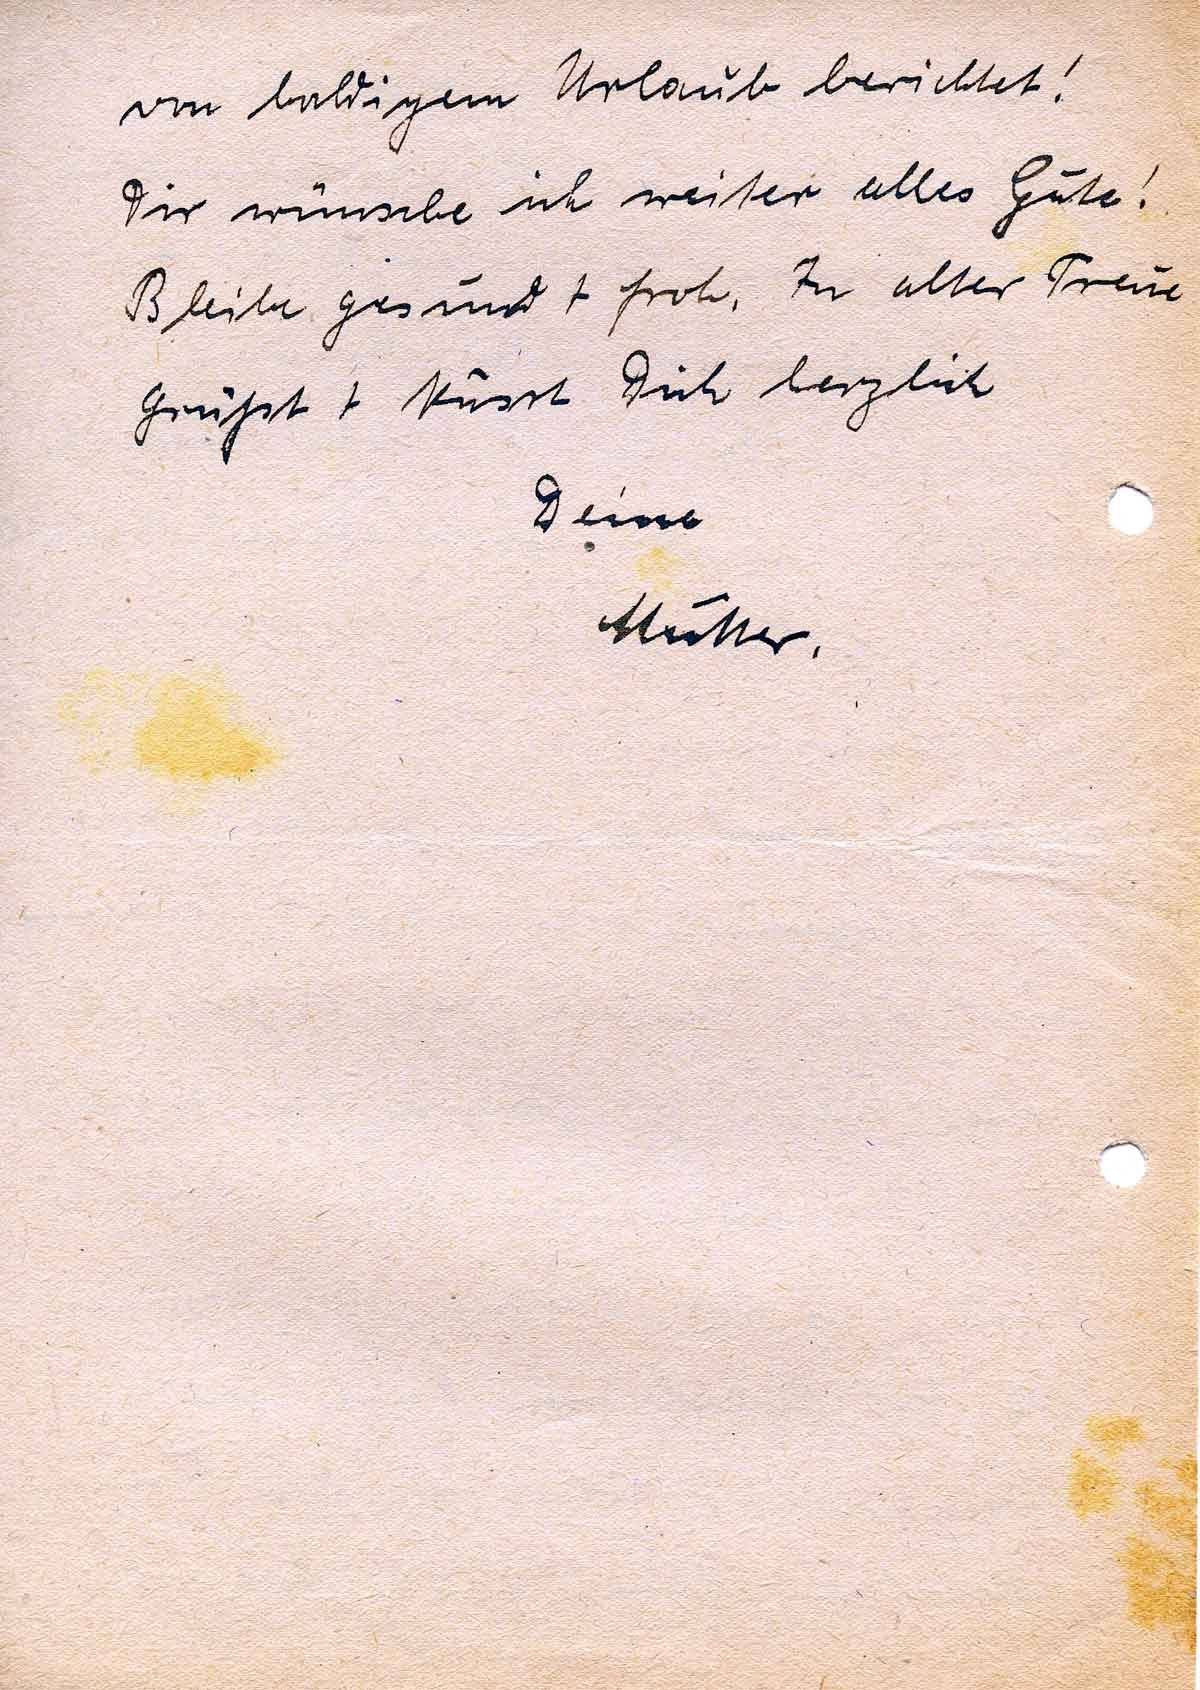 von baldigem Urlaub berichtet!
Dir wünsche ich weiter alles Gute!
Bleibe gesund + froh. In alter Treue
grüßt + küsst Dich herzlich
Deine
Mutter.